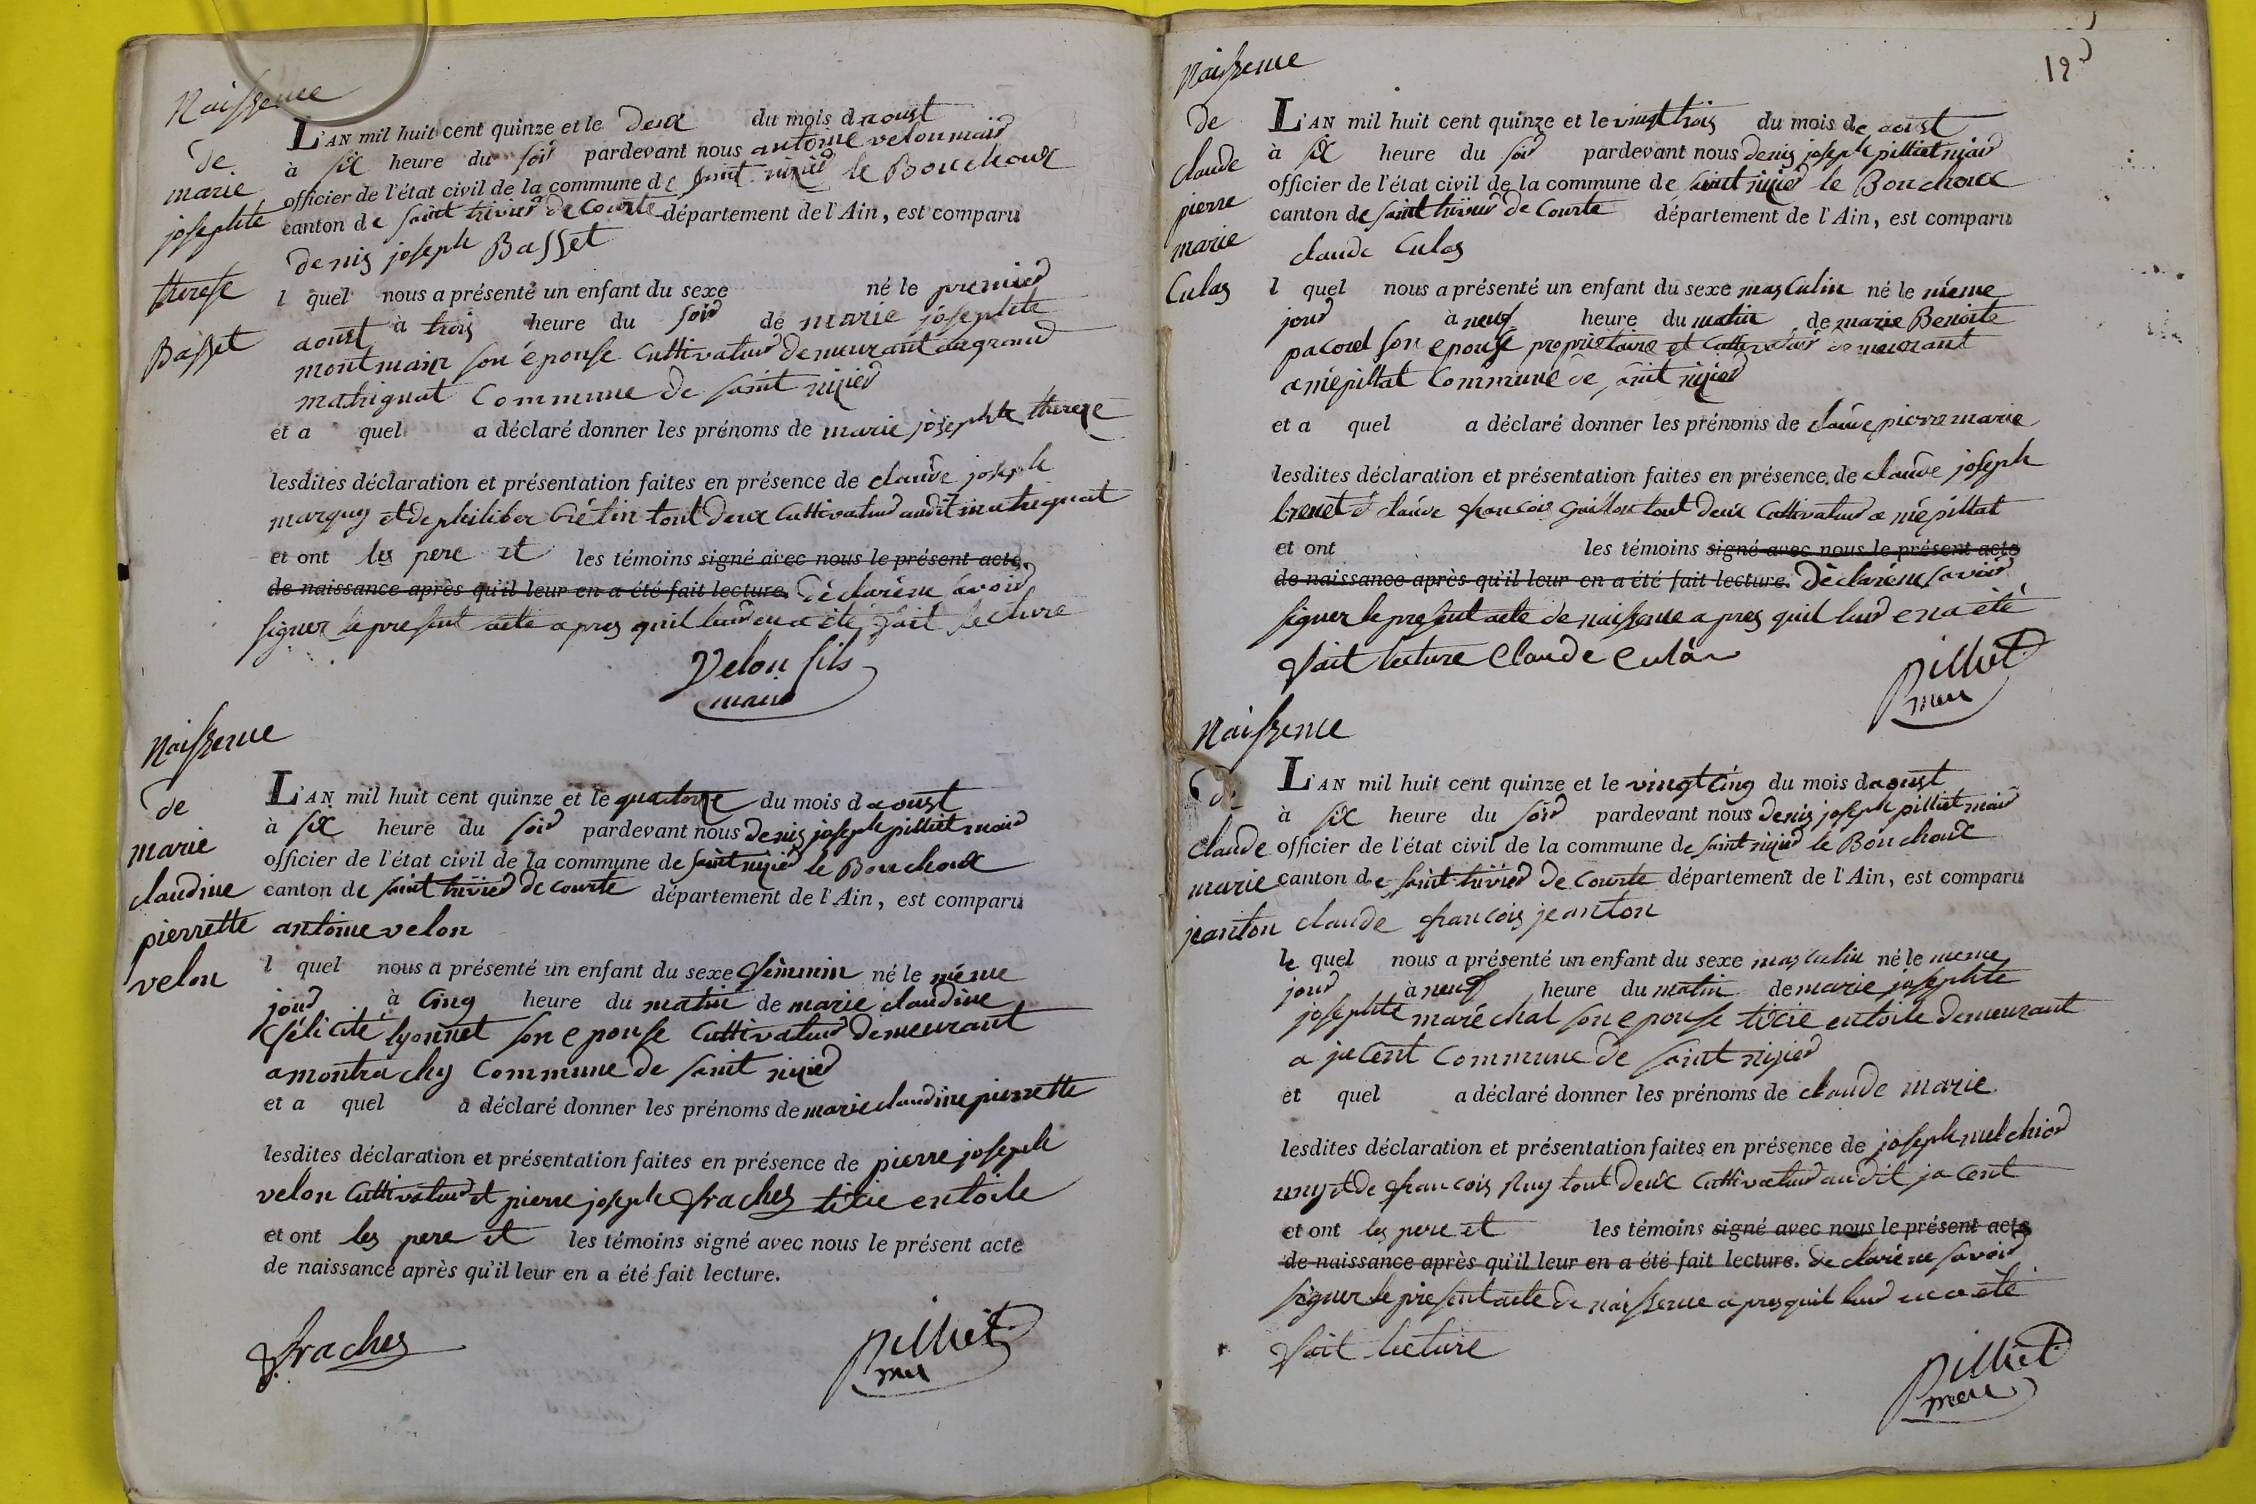 Naissence
de
marie
josephte
therese
Basset
L'AN mil huit cent quinze et le deux du mois d aoust
à six heure du soir pardevant nous antoine velon maire
officier de l'état civil de la commune de saint nizier le Bouchoux
canton de saint trivier de Courte département de l'Ain, est comparu
denis joseph Basset
l quel nous a présenté un enfant du sexe né le premier
aoust à trois heure du soir de marie josephte
montmain son épouse Cultivateur demeurant au grand
matrignat Commune de saint nizier
et a quel a déclaré donner les prénoms de marie josephte therese
lesdites déclaration et présentation faites en présence de claude joseph
marguy et de philiber Grétin tout deux Cultivateur audit matrignat
et ont les pere et les témoins signé avec nous le présent acte
de naissance après qu'il leur en a été fait lecture. déclaré ne savoir
signer le present acte apres quil leur en a été fait lecture
Velon fils
maire
Naissence
de
marie
claudine
pierrette
velon
L'AN mil huit cent quinze et le quatorze du mois d aoust
à six heure du soir pardevant nous denis joseph pilliet maire
officier de l'état civil de la commune de saint nizier le Bouchoux
canton de saint trivier de courte département de l'Ain, est comparu
antoine velon
l quel nous a présenté un enfant du sexe féminin né le méme
jour à Cinq heure du matin de marie claudine
félicité lyonnet son epouse Cultivateur demeurant
a montrachy Commune de saint nizier
et a quel a déclaré donner les prénoms de marie claudine pierrette
lesdites déclaration et présentation faites en présence de pierre joseph
velon Cultivateur et pierre joseph fraches tixie en toile
et ont les pere et les témoins signé avec nous le présent acte
de naissance après qu'il leur en a été fait lecture.
fraches
Pilliet
mer
12
Naissence
de
claude
pierre
marie
Culas
L'AN mil huit cent quinze et le vingt trois du mois de aoust
à six heure du soir pardevant nous denis joseph pilliet maire
officier de l'état civil de la commune de saint nizier le Bouchoux
canton de saint trivier de Courte département de l'Ain, est comparu
claude Culas
l quel nous a présenté un enfant du sexe masculin né le méme
jour à neuf heure du matin de marie Benoite
pacoud son epouse proprietaire et Cultivateur demeurant
a mépillat Commune de saint nizier
et a quel a déclaré donner les prénoms de claude pierre marie
lesdites déclaration et présentation faites en présence de claude joseph
brenet et claude francois Guillon tout deux Cultivateur a mépillat
et ont les témoins signé avec nous le présent acte
de naissance après qu'il leur en a été fait lecture. déclaré ne savoir
signer le present acte de naissence apres quil leur en a été
fait lecture Claude Culas
Pilliet
mer
Naissence
de
claude
marie
jeanton
L'AN mil huit cent quinze et le vingt cinq du mois d aoust
à six heure du soir pardevant nous denis joseph pilliet maire
officier de l'état civil de la commune de saint nizier le Bouchoux
canton de saint trivier de Courte département de l'Ain, est comparu
claude francois jeanton
le quel nous a présenté un enfant du sexe masculin né le meme
jour à neuf heure du matin de marie josephte
josephte maréchal son epouse tixie en toile demeurant
a jacent Commune de saint nizier
et quel a déclaré donner les prénoms de claude marie
lesdites déclaration et présentation faites en présence de joseph melchior
et de francois tout deux Cultivateur audit jacent
et ont les pere et les témoins signé avec nous le présent acte
de naissance après qu'il leur en a été fait lecture. declaré ne savoir
signer le present acte de naissence apres quil leur en a été
fait lecture
Pilliet
mer